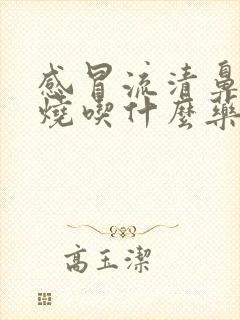 感冒流清鼻
燒喫什麼藥
高玉潔